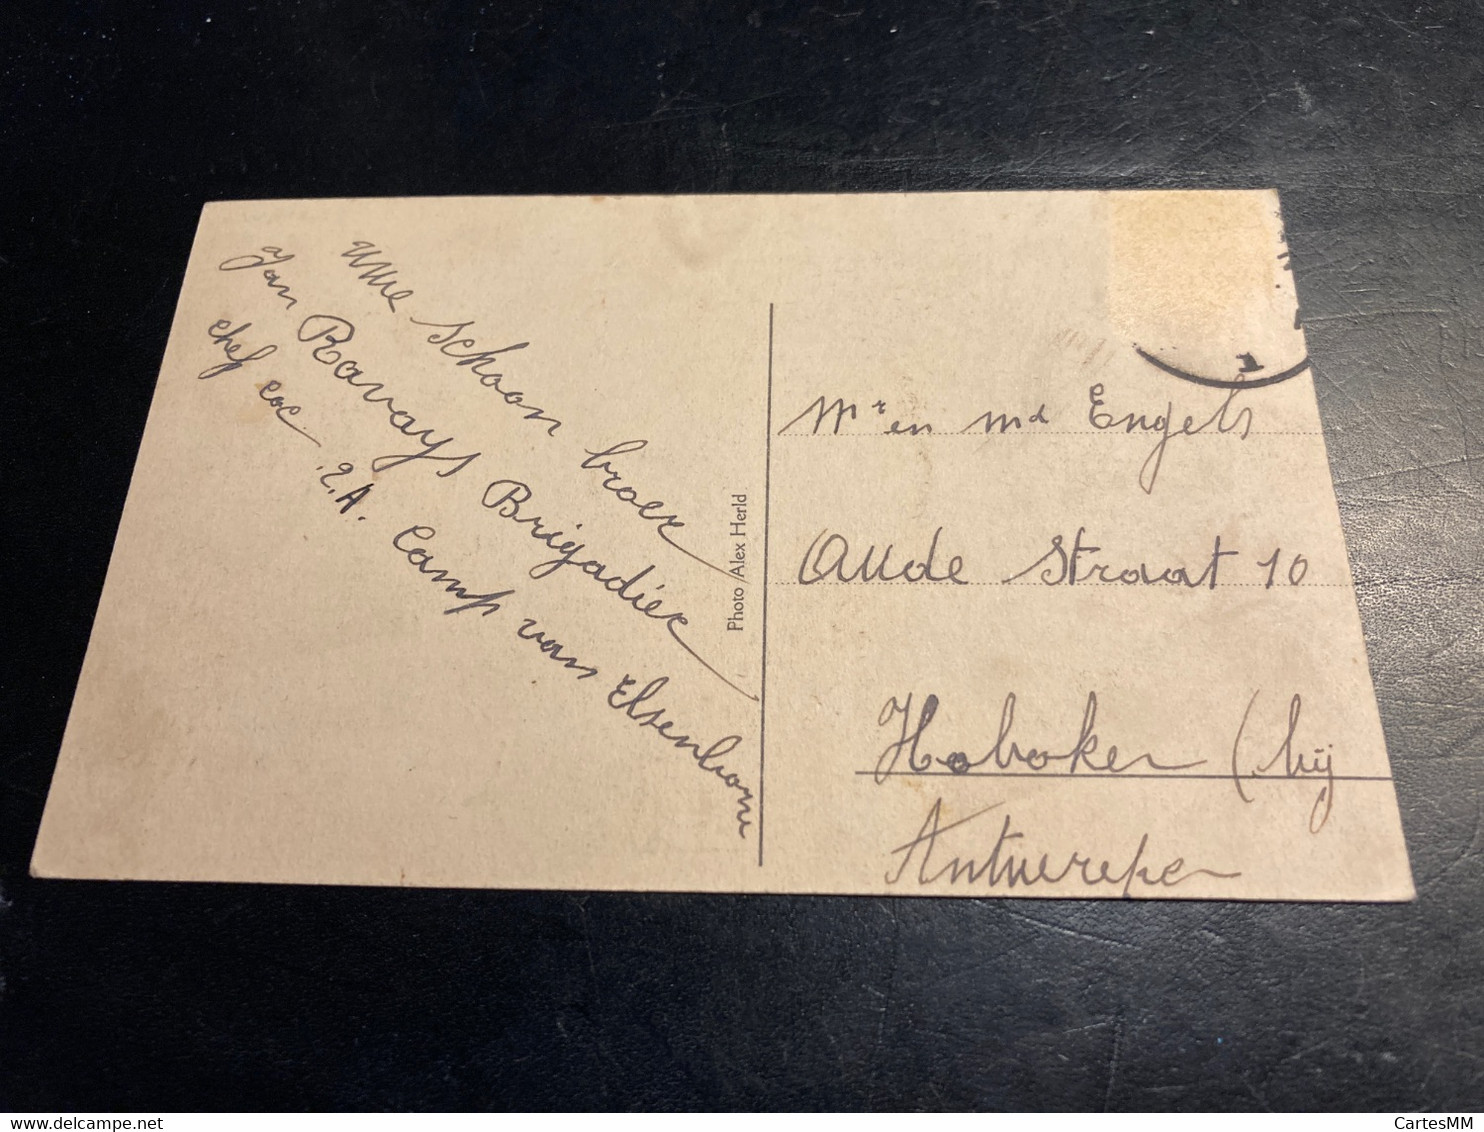 uwe schoon broer
Jan Ravays Brigadier
chef 2.A. Camp van Elsenborn
Photo Alex Herld
1
Mr en Md Engels
Oude Straat 10
Hoboken (bij
Antwerepen
CartesMM